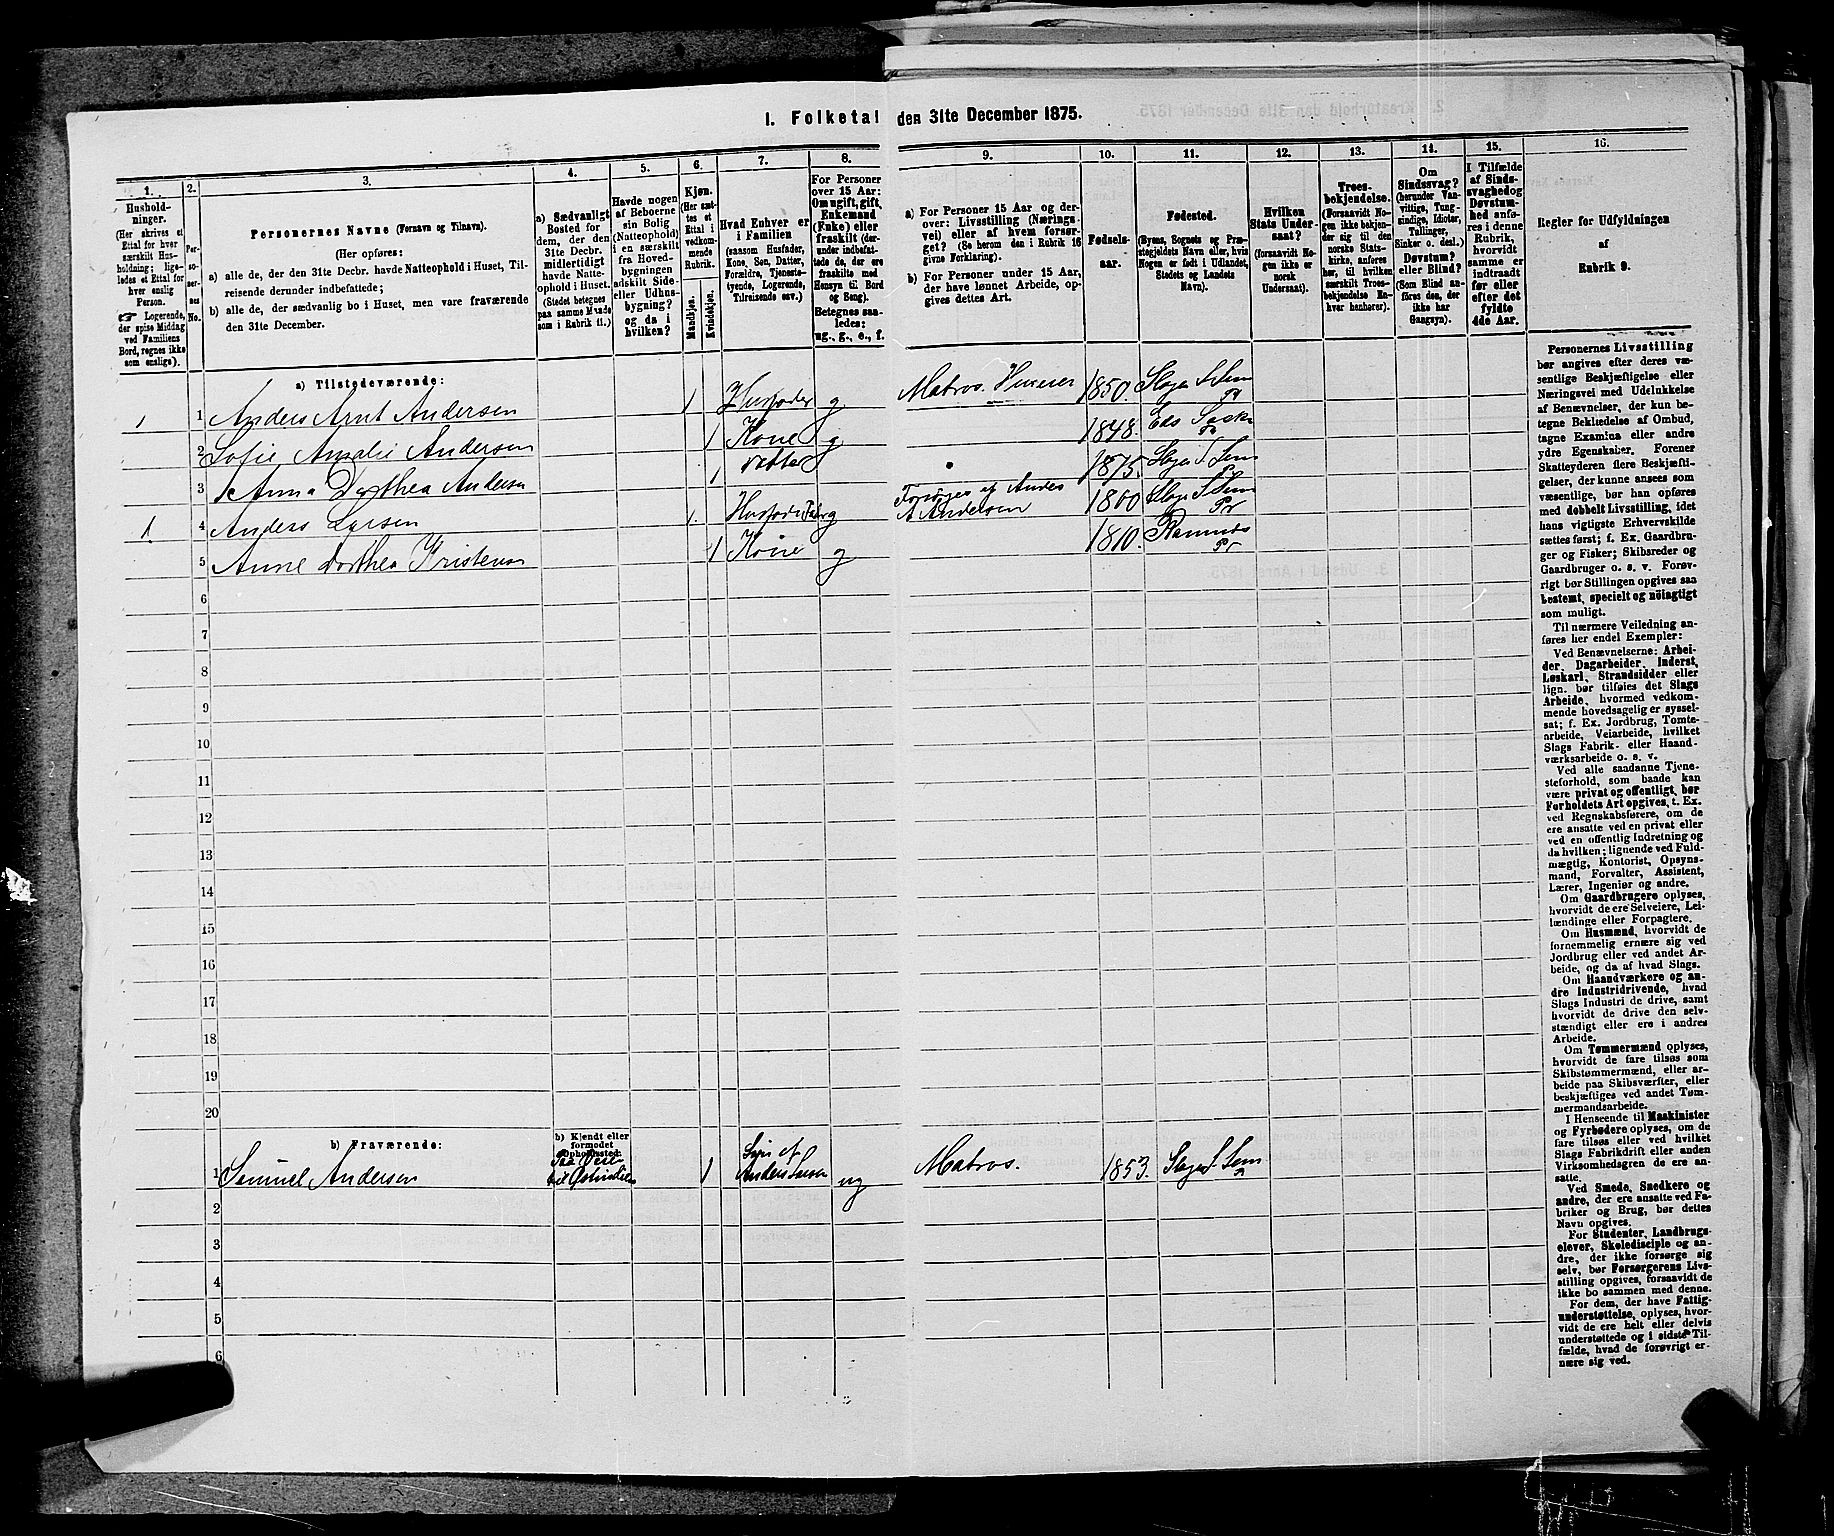 I. Folketal den 31te December 1875.
1.
2.
3.
4.
5.
6.
7.
8.
9.
10.
11.
12.
13.
14.
15.
16.
Hushold-
ninger.
(Her skrives et
Ettal for hver
særskilt Hus-
holdning; lige-
ledes et Ettal for
hver enslig
Person.
☞ Logerende,
der spise Middag
ved Familiens
Bord, regnes ikke
som enslige).
Per-
so-
ner-
nes
No.
Personernes Navne (Fornavn og Tilnavn).
(Her opføres:
a) alle de, der den 31te Decbr. havde Natteophold i Huset, Til-
reisende derunder indbefattede;
b) alle de, der sædvanlig bo i Huset, men vare fraværende
den 31te December.
a) Sædvanligt
Bosted for
dem, der den
31te Decbr.
midlertidigt
havde Natte-
ophold i Huset.
(Stedet betegnes
paa samme Maade
som i Rubrik 11.)
Havde nogen
af Beboerne
sin Bolig
(Natteophold)
i en særskilt
fra Hoved-
bygningen
adskilt Side-
eller Udhus-
bygning?
og da i
hvilken?
Kjøn.
(Her sæt-
tes et
Ettal i
vedkom-
mende
Rubrik.
Mandkjøn.
Kvindekjøn.
Hvad Enhver er
i Familien
(saasom Husfader,
Kone, Søn, Datter,
Forældre, Tjeneste-
tyende, Logerende,
Tilreisende osv.)
For Personer
over 15 Aar:
Om ugift, gift,
Enkemand
(Enke) eller
fraskilt (der-
under indbefat-
tede de, der ere
fraskilte med
Hensyn til Bord
og Seng).
Betegnes saa-
ledes:
ug., g., e., f.
a) For Personer 15 Aar og der-
over: Livsstilling (Nærings-
vei) eller af hvem forsør-
get? (Se herom den i Rubrik 16
givne Forklaring).
b) For Personer under 15 Aar,
der have lønnet Arbeide, op-
gives dettes Art.
Fødsels-
aar.
Fødested.
(Byens, Sognets og Præ-
stegjeldets Navn eller, hvis
Nogen er født i Udlandet,
Stedets og Landets
Navn).
Hvilken
Stats Under-
saat?
(forsaavidt No-
gen ikke er
norsk
Undersaat).
Troes-
bekjendelse.
(Forsaavidt No-
gen ikke bekjen-
der sig til den
norske Stats-
kirke, anføres
her, til hvilken
særskilt Troes-
bekjendelse En-
hver henhører).
Om
Sindssvag?
(herunder Van-
vittige, Tung-
sindige, Idioter,
Tullinger,
Sinker o. desl.)
Døvstum?
eller Blind?
(Som Blind an-
føres den, der
ikke har
Gangsyn).
I Tilfælde
af Sinds-
svaghed og
Døvstum-
hed anfø-
res i denne
Rubrik,
hvorvidt
samme er
indtraadt
før eller
efter det
fyldte
4de Aar.
Regler for Udfyldningen
af
Rubrik 9.
a) Tilstedeværende:
1 1 Anders Arnt Andersen 1 Husfader g Matros. 1850. Slagn S Sem Pr
2 Sofie Amalie Andersen 1 Kone g 1848. Eds Pr
3 Anna Dorthea Andersen 1 Datter 1875. Slagn S Sem Pr
1 4 Anders Larsen 1. Husfader g Forsørges af Anders
A Andersen 1800 Slagn S Sem Pr
5 Anne Dorthea Kristensen 1 Kone g 1810. Ramnes Pr
6
7
8
9
10
11
12
13
14
15
16
17
18
19
20
b) Fraværende:
b) Kjendt eller
formodet
Opholdssted.
1 Samuel Andersen Paa Reise
til Ostindien 1 Søn af
Anders Larsen ug Matros. 1853. Slagn S Sem Pr
2
3
4
5
6
Personernes Livsstilling
bør angives efter deres væ-
sentlige Beskjæftigelse eller
Næringsvei med Udelukkelse
af Benævnelser, der kun be-
tegne Bekledelse af Ombud,
tagne Examina eller andre
ydre Egenskaber. Forener
Skatteyderen flere Beskjæfti-
gelser, der kunne ansees som
væsentlige, bør han opføres
med dobbelt Livsstilling, idet
hans vigtigste Erhvervskilde
sættes først; f. Ex. Gaardbru-
ger og Fisker; Skibsreder og
Gaardbruger o. s. v. Forøv-
rigt bør Stillingen opgives saa
bestemt, specielt og nöiagtigt
som muligt.
Til nærmere Veiledning an-
føres her endel Exempler:
Ved Benævnelserne: Arbei-
der, Dagarbeider, Inderst,
Løskarl, Strandsidder eller
lign. bør tilføies det Slags
Arbeide, hvormed vedkom-
mende hovedsagelig er syssel-
sat; f. Ex. Jordbrug, Tomte-
arbeide, Veiarbeide, hvilket
Slags Fabrik- eller Haand-
værksarbeide o. s. v.
Ved alle saadanne Tjene-
steforhold, som baade kan
være privat og offentligt, bør
Forholdets Art opgives, t. Ex.
ved Regnskabsførere, om de
ere ansatte ved en privat eller
ved en offentlig Indretning og
da hvilken; lignende ved Fuld-
mægtig, Kontorist, Opsyns-
mand, Forvalter, Assistent,
Lærer, Ingeniør og andre.
Om Gaardbrugere oplyses,
hvorvidt de ere Selveiere, Lei-
lændinge eller Forpagtere.
Om Husmænd, hvorvidt de
fornemmelig ernære sig ved
Jordbrug eller ved andet Ar-
beide, og da af hvad Slags.
Om Haandværkere og an-
dre Industridrivende, hvad
Slags Industri de drive, samt
hvorvidt de drive den selv-
stændigt eller ere i andres
Arbeide.
Om Tømmermænd oplyses,
hvorvidt de fare tilsøs som
Skibstømmermænd, eller ar-
beide paa Skibsværfter, eller
beskjæftiges ved andet Tøm-
mermandsarbeide.
I Henseende til Maskinister
og Fyrbødere oplyses, om de
fare tilsøs eller ved hvilket
Slags Fabrikdrift eller anden
Virksomhedsgren de ere an-
satte.
Ved Smede, Snedkere og
andre, der ere ansatte ved Fa-
briker og Brug, bør dettes
Navn opgives.
For Studenter, Landbrugs-
elever, Skoledisciple og an-
dre, der ikke forsørge sig
selv, bør Forsørgerens Livs-
stilling opgives, forsaavidt de
ikke bo sammen med denne.
For dem, der have Fattig-
understøttelse, oplyses, hvor-
vidt de ere helt eller delvis
understøttede og i sidste Til-
fælde, hvad de forøvrigt er-
nære sig ved.